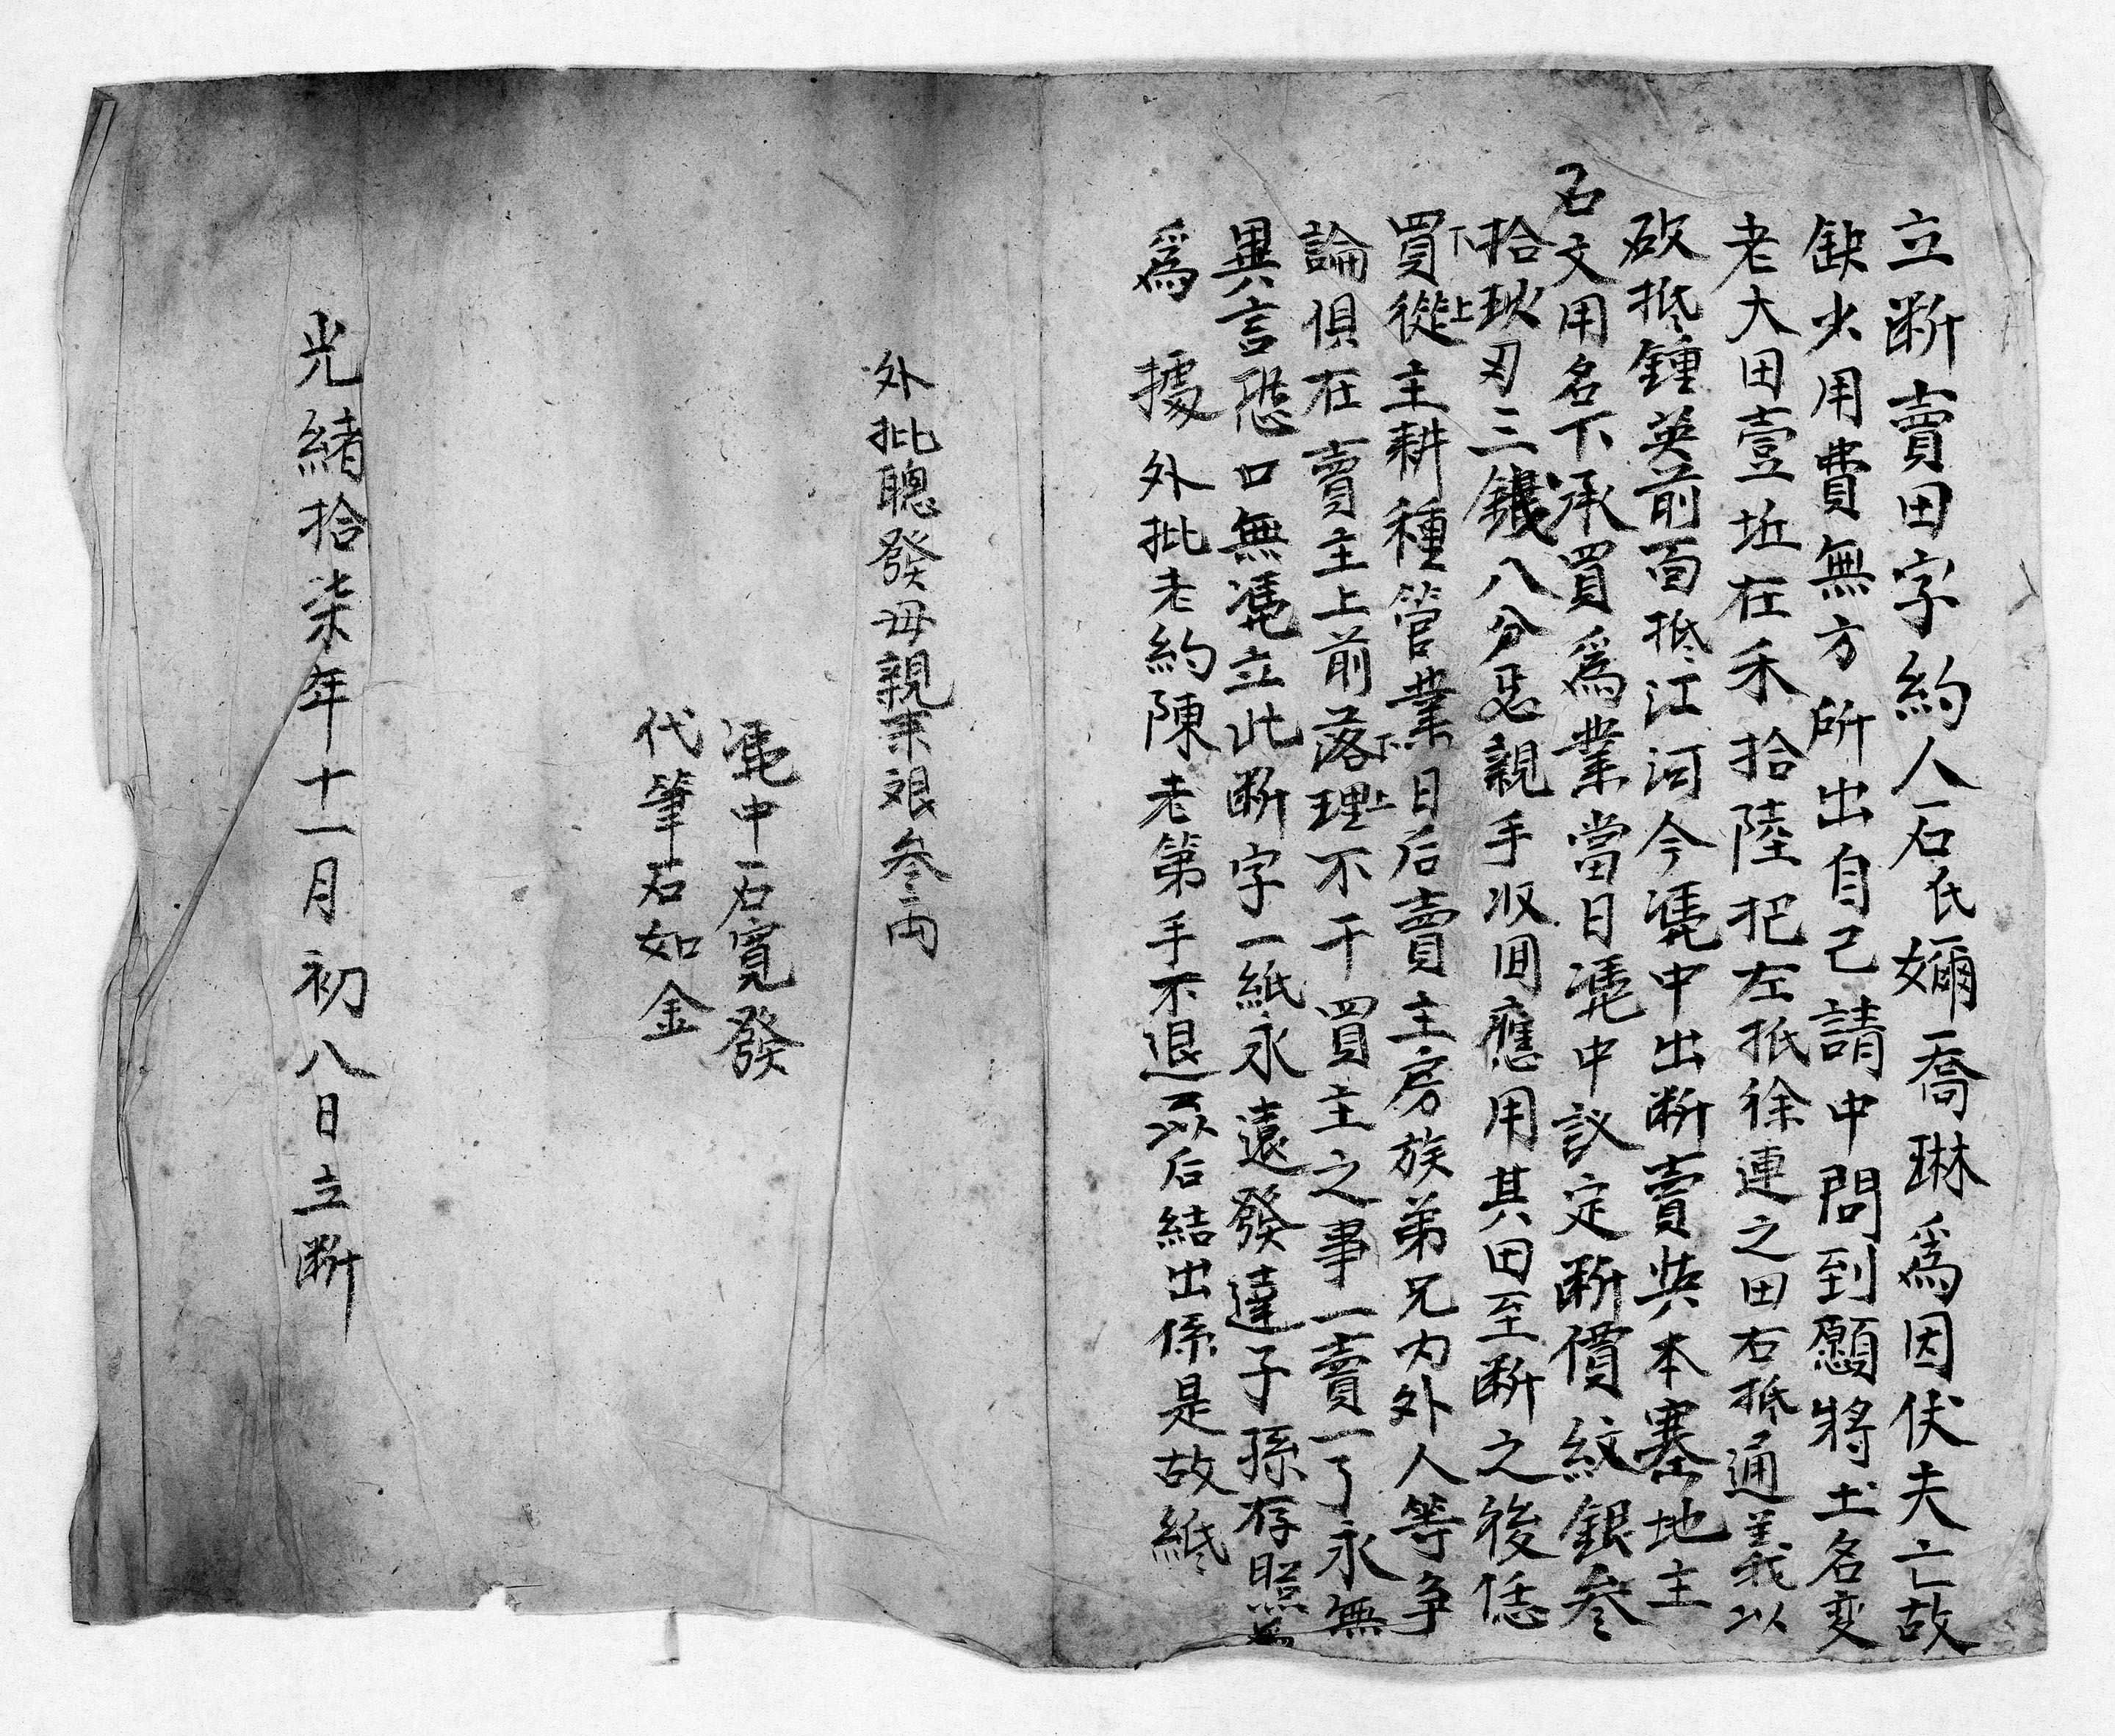 立断賣田字約人石氏嬭喬琳爲因伏夫亡故
缺少用費無方所出自己請中問到願將土名変
老大田壹坵在禾拾陸把左抵徐連之田右抵通義以
砍抵鍾英前面抵江河今凴中出断賣與本寨地主
石文用名下承買爲業當日凴中議定断價紋銀叁
拾玖刄三錢八分恁親手収囬應用其田至断之後恁
買從下上主耕種管業日后賣主房族弟兄内外人等争
論俱在賣主上前落理下上不干買主之事一賣一了永無
異言恐口無凴立此断字一紙永遠發達子孫存照爲
爲 據 外批老約陳老第手不退以后結出係是故紙
外批聰發母親業艮叁両
凴中石寬發
代筆石如金
光緒拾柒年十一月初八日立断